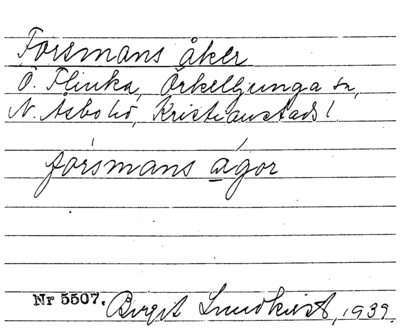 Forsmans åker
Ö. Flinka, Örkelljunga sn,
N. Åsbo hd, Kristianstads l.
forsmans ágor
Nr 5507. Birgit Lundkvist, 1939.